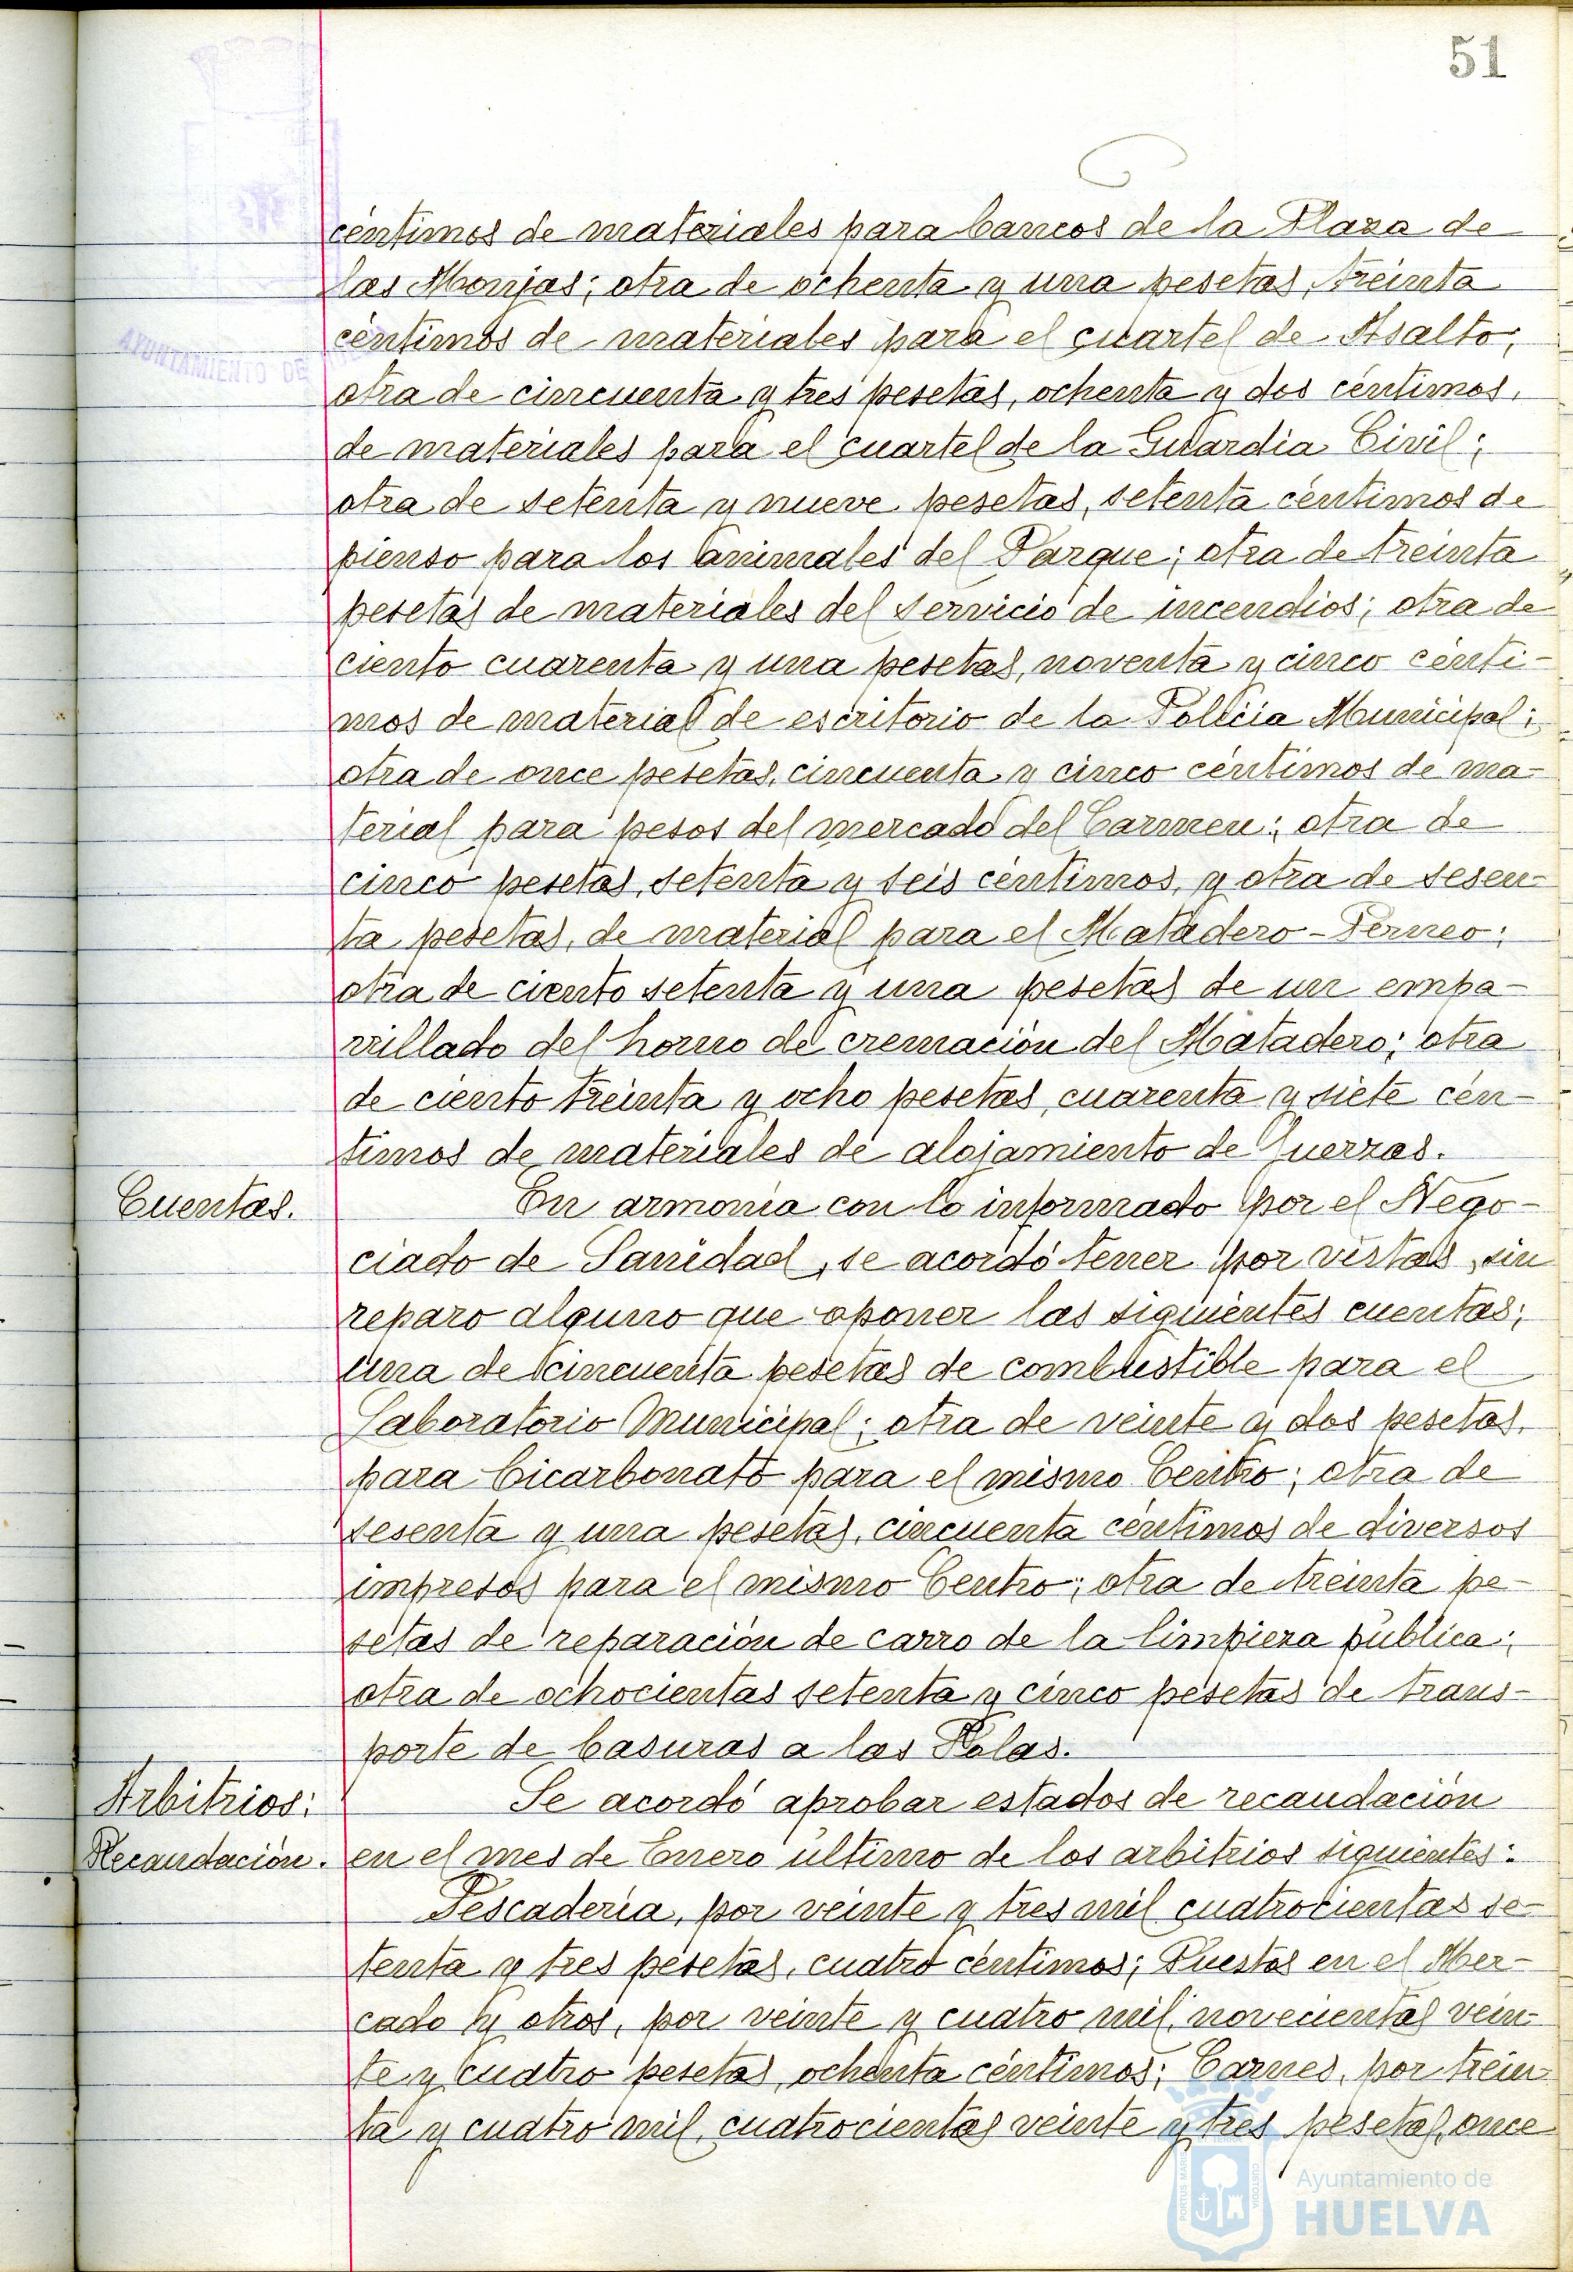 51
céntimos de materiales para bancos de la Plaza de
las Monjas; otra de ochenta y una pesetas, treinta
céntimos de materiales para el cuartel de Asalto;
otra de cincuenta y tres pesetas, ochenta y dos céntimos,
de materiales para el cuartel de la Guardia Civil;
otra de setenta y nueve pesetas, setenta céntimos de
pienso para los animales del Parque; otra de treinta
pesetas de materiales del servicio de incendios; otra de
ciento cuarenta y una pesetas, noventa y cinco cénti-
mos de material de escritorio de la Policía Municipal;
otra de once pesetas, cincuenta y cinco céntimos de ma-
terial para pesos del mercado del Carmen; otra de
cinco pesetas, setenta y seis céntimos, y otra de sesen-
ta pesetas, de material para el Matadero-Perneo;
otra de ciento setenta y una pesetas de un empa-
rrillado del horno de cremación del Matadero; otra
de ciento treinta y ocho pesetas, cuarenta y siete cén-
timos de materiales de alojamiento de Guerras.
Cuentas.
En armonía con lo informado por el Nego-
ciado de Sanidad, se acordó tener por vistas, sin
reparo alguno que oponer las siguientes cuentas;
una de cincuenta pesetas de combustible para el
Laboratorio Municipal; otra de veinte y dos pesetas,
para bicarbonato para el mismo Centro; otra de
sesenta y una pesetas, cincuenta céntimos de diversos
impresos para el mismo Centro; otra de treinta pe-
setas de reparación de carro de la limpieza pública;
otra de ochocientas setenta y cinco pesetas de trans-
porte de basuras a las Polas.
Arbitrios:
Recaudación.
Se acordó aprobar estados de recaudación
en el mes de Enero último de los arbitrios siguientes:
Pescadería, por veinte y tres mil cuatrocientas se-
tenta y tres pesetas, cuatro céntimos; Puestos en el Mer-
cado y otros, por veinte y cuatro mil, novecientas vein-
te y cuatro pesetas, ochenta céntimos; Carnes, por trein-
ta y cuatro mil, cuatrocientas veinte y tres pesetas, once
AYUNTAMIENTO DE
PORTUS MARIS
CUSTODIA
Ayuntamiento de
HUELVA